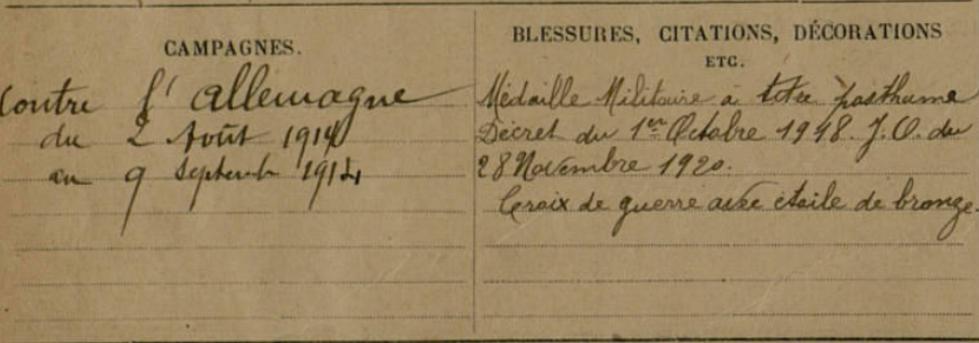 CAMPAGNES.
Contre l'allemagne
du 2 Août 1914
au 9 Septemb 1914
BLESSURES, CITATIONS, DÉCORATIONS
ETC.
Médaille Militaire à titre posthume
Décret du 1er Octobre 1918. J.O. du
28 Novembre 1920.
Croix de guerre avec étoile de bronze.